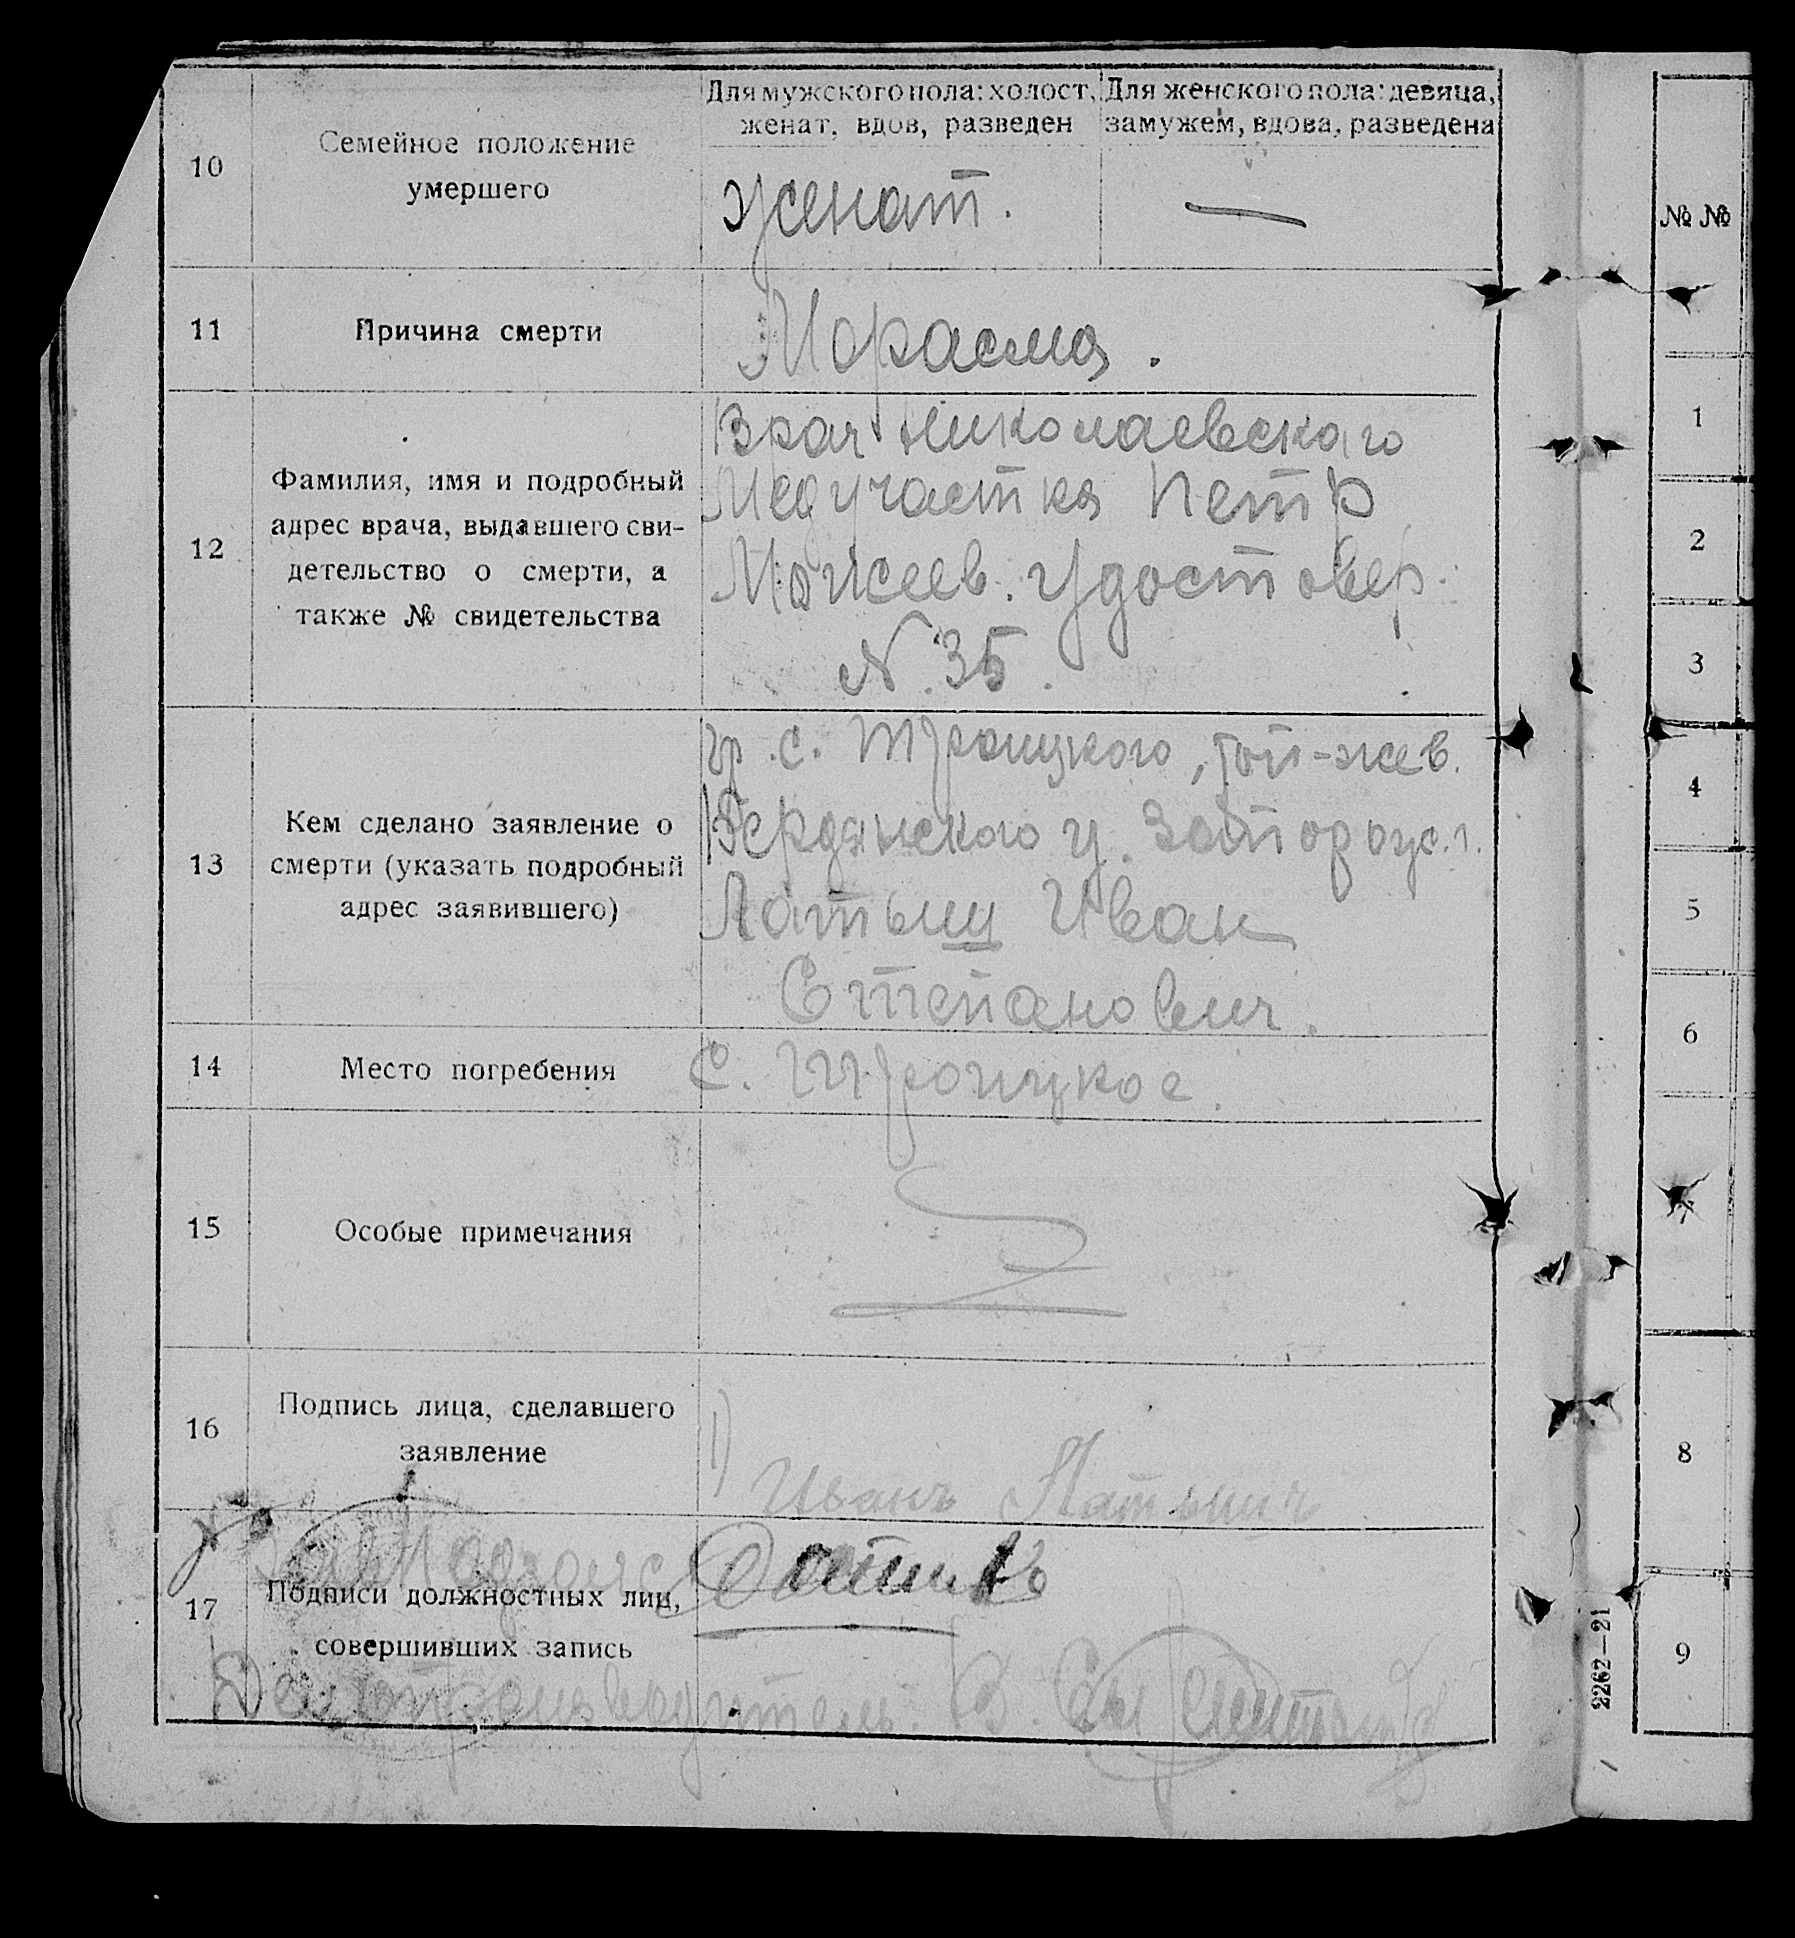 10
Семейное положение
умершего
Для мужского пола: холост,
женат, вдов, разведен
Для женского пола: девица,
замужем, вдова, разведена
женат.
—
11
Причина смерти
Морасма.
12
Фамилия, имя и подробный
адрес врача, выдавшего сви-
детельство о смерти, а
также № свидетельства
Врач Николаевского
Медучастка Петр
Моисеев. Удостовер.
N. 35.
13
Кем сделано заявление о
смерти (указать подробный
адрес заявившего)
гр. с. Троицкого,
Бердянского у. Запорожс. г.
Латыш Иван
Степанович.
14
Место погребения
с. Троицкое.
15
Особые примечания
16
Подпись лица, сделавшего
заявление
1) Иванъ Латышъ
17
Подписи должностных лиц,
совершивших запись
Делопроизводитель
№ №
1
2
3
4
5
6
7
8
9
2262—21